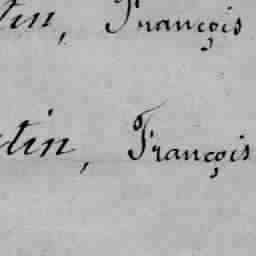 tin, François
tin, François